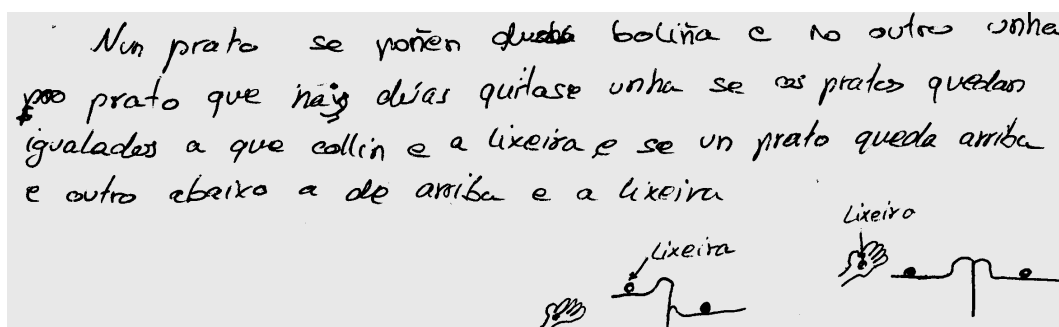 Nun prato se poñen boliña e no outro unha
prato que hay dúas quitase unha se os pratos quedan
igualados a que collin e a lixeira e se un prato queda arriba
e outro abaixo a de arriba e a lixeira
Lixeira
Lixeira